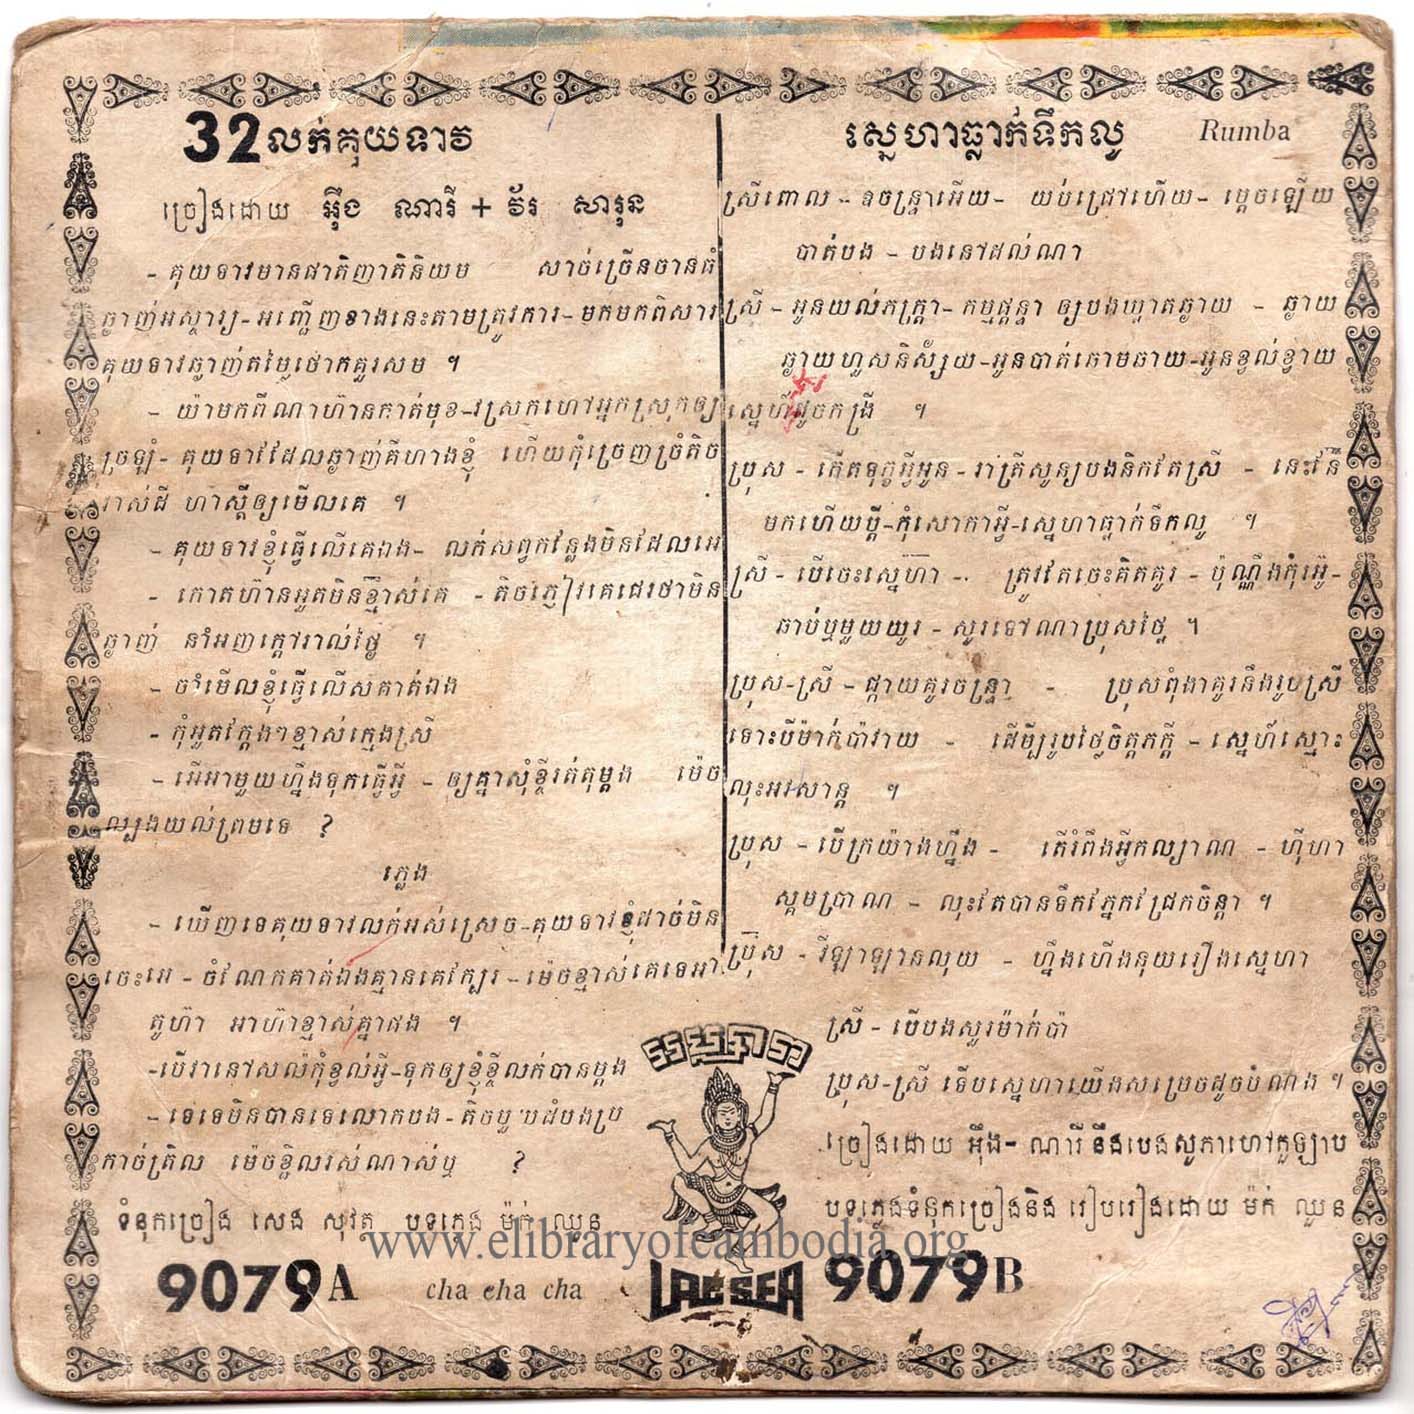 32 លក់គុយទាវ
ច្រៀងដោយ អ៊ឹង ណារី + វ័រ សារុន
- គុយទាវមានជាតិញាតិនិយម សាច់ច្រើនចានធំ
ឆ្ងាញ់អស្ចារ្យ - អញ្ជើញខាងនេះតាមត្រូវការ - មកមកពិសារ
គុយទាវឆ្ងាញ់តម្លៃថោកគួរសម ។
- យ៉ាមកពីណាហ៊ានកាត់មុខ - ស្រែកហៅអ្នកស្រុកឲ្យ
ច្រឡំ - គុយទាវដែលឆ្ងាញ់គឺហាងខ្ញុំ ហើយកុំច្រេញច្រំតិច
រាស់ដី ហាស្ដីឲ្យមើលគេ ។
- គុយទាវខ្ញុំធ្វើលើគេឯង - លក់សព្វកន្លែងមិនដែលអេ
- កោតហ៊ានអួតមិនខ្មាស់គេ - តិចភ្ញៀវគេជេរថាមិន
ឆ្ងាញ់ នាំអញក្ដៅរាល់ថ្ងៃ ។
- ចាំមើលខ្ញុំធ្វើលើសគាត់ឯង
- កុំអួតក្អែងៗខ្មាស់ក្មេងស្រី
- អើអាមួយហ្នឹងទុកធ្វើអ្វី - ឲ្យគ្នាសុំខ្ចីរត់តុម្ដង ម៉េច
ល្បងយល់ព្រមទេ ?
ភ្លេង
- ឃើញទេគុយទាវលក់អស់ស្រេច - គុយទាវខ្ញុំដាច់មិន
ចេះអេ - ចំណែកគាត់ឯងគ្មានគេក្បែរ - ម៉េចខ្មាស់គេទេអា
តូហ៊ា អាហ៊ាខ្មាស់គ្នាផង ។
- បើវានៅសល់កុំខ្វល់អ្វី - ទុកឲ្យខ្ញុំខ្ចីលក់បានម្ដង
- ទេទេមិនបានទេលោកបង - តិចបង
កាច់ត្រិល ម៉េចខ្ជិលរស់ណាស់ឬ ?
ទំនុកច្រៀង សេង សុវត្ថ បទភ្លេង ម៉ក់ ឈួន
9079 A cha cha cha
ស្នេហាធ្លាក់ទឹកលូ Rumba
ស្រីពោល - ឧចន្ទ្រាអើយ - យប់ជ្រៅហើយ - ម្ដេចឡើយ
បាត់បង - បងនៅដល់ណា
ស្រី - អូនយល់ភក្ត្រា - កម្មផ្ដន្ទា ឲ្យបងឃ្លាតឆ្ងាយ - ឆ្ងាយ
ឆ្ងាយហួសនិស្ស័យ - អូនបាត់ឆោមឆាយ - អូនខ្វល់ខ្វាយ
ស្នេហ៍ដូចកង្រី ។
ប្រុស - កើតទុក្ខអ្វីអូន - រាត្រីសូន្យបងនឹកតែស្រី - នេះនែ៎
មកហើយប្ដី - កុំសោកាអ្វី - ស្នេហាធ្លាក់ទឹកលូ ។
ស្រី - បើចេះស្នេហ៍ា - ត្រូវតែចេះគិតគូរ - ប៉ុណ្ណឹងកុំរអ៊ូ -
ឆាប់ឬមួយយូរ - សួរទៅណាប្រុសថ្លៃ ។
ប្រុស - ស្រី - ផ្កាយគូរចន្ទ្រា - ប្រុសពុំងាគូរនឹងរូបស្រី
ទោះបីម៉ាក់ប៉ាវាយ - ដើម្បីរូបថ្លៃចិត្តភក្ដី - ស្នេហ៍ស្មោះ
លុះអវសាន្ត ។
ប្រុស - បើក្រយ៉ាងហ្នឹង - តើរំពឹងអ្វីកល្យាណ - ហ៊ីហា
ស្គមប្រាណ - លុះតែបានទឹកភ្នែកជ្រែកចិន្តា ។
ប្រុស - វីឡាឡានលុយ - ហ្នឹងហើងនុយរឿងស្នេហា
ស្រី - បើបងសួរម៉ាក់ប៉ា
ប្រុស - ស្រី ទើបស្នេហាយើងសម្រេចដូចបំណង ។
ច្រៀងដោយ អ៊ឹង - ណារី នឹងបេងសូភាហៅកូឡាប
បទភ្លេងទំនុកច្រៀងនិង រៀបរៀងដោយ ម៉ក់ ឈួន
LAC SEA
9079 B
www.elibraryofcambodia.org